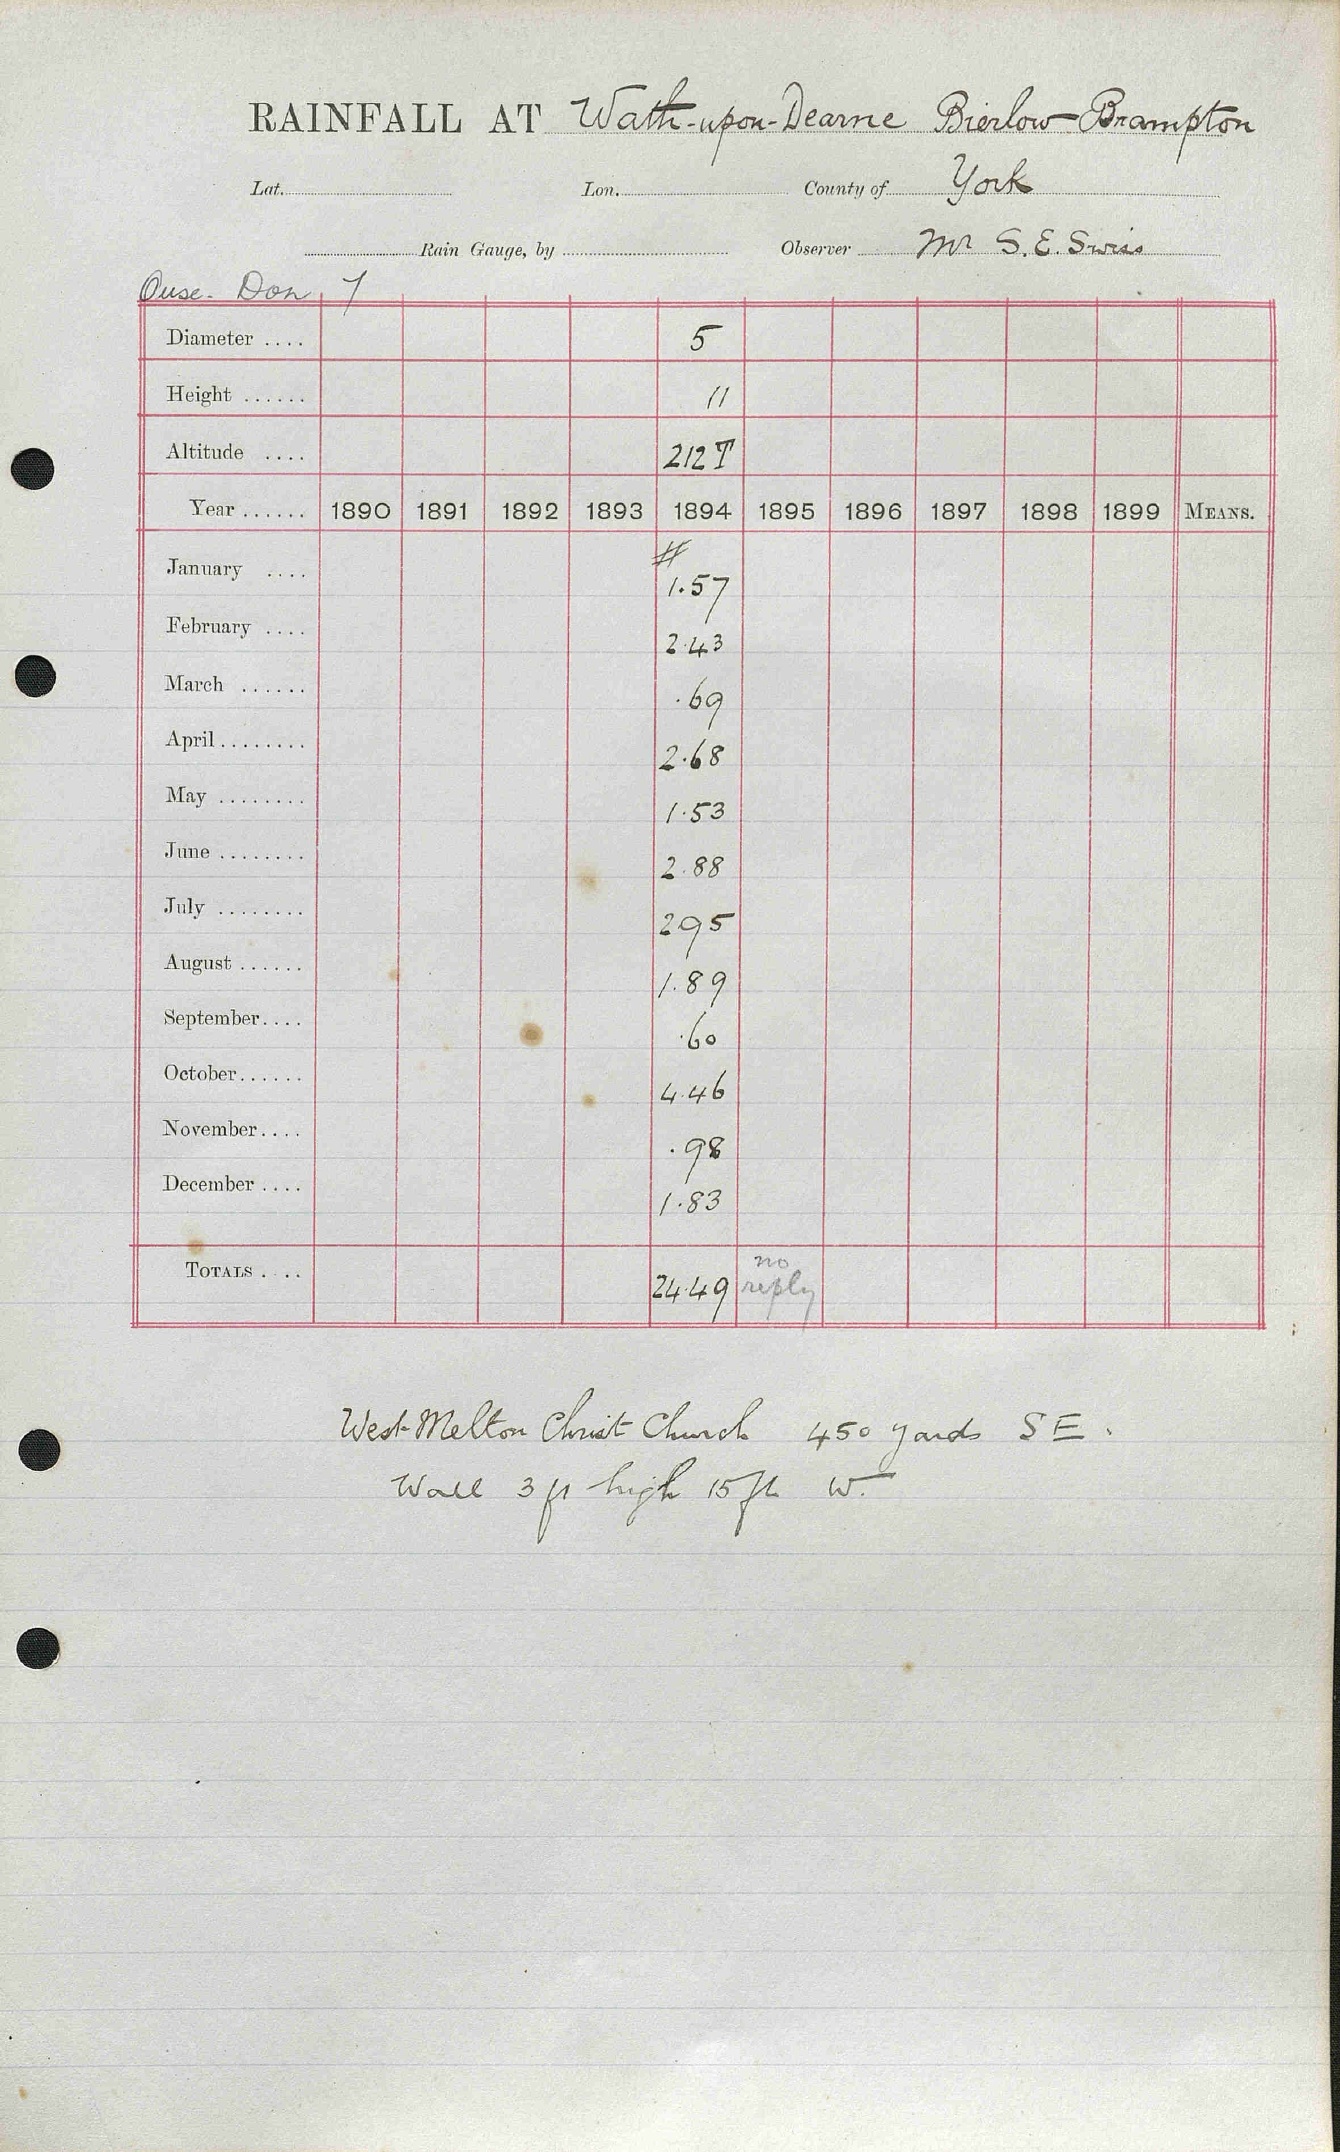 RAINFALL AT Wath-upon-Dearne Bierlow Brampton
Lat. Lon. County of York
Rain Gauge, by Observer Mr S. E. Swiss
Ouse. Don 7
Diameter .... 5
Height ...... 11
Altitude .... 212 T
Year ...... 1890 1891 1892 1893 1894 1895 1896 1897 1898 1899 MEANS.
#
January .... 1.57
February .... 2.43
March ...... .69
April ........ 2.68
May ........ 1.53
June ........ 2.88
July ........ 2 95
August ...... 1.89
September .... .60
October ...... 4.46
November .... .98
December .... 1.83
TOTALS .... 24.49 no reply
West Melton Christ Church 450 yards S E.
Wall 3 ft high 15 ft W.